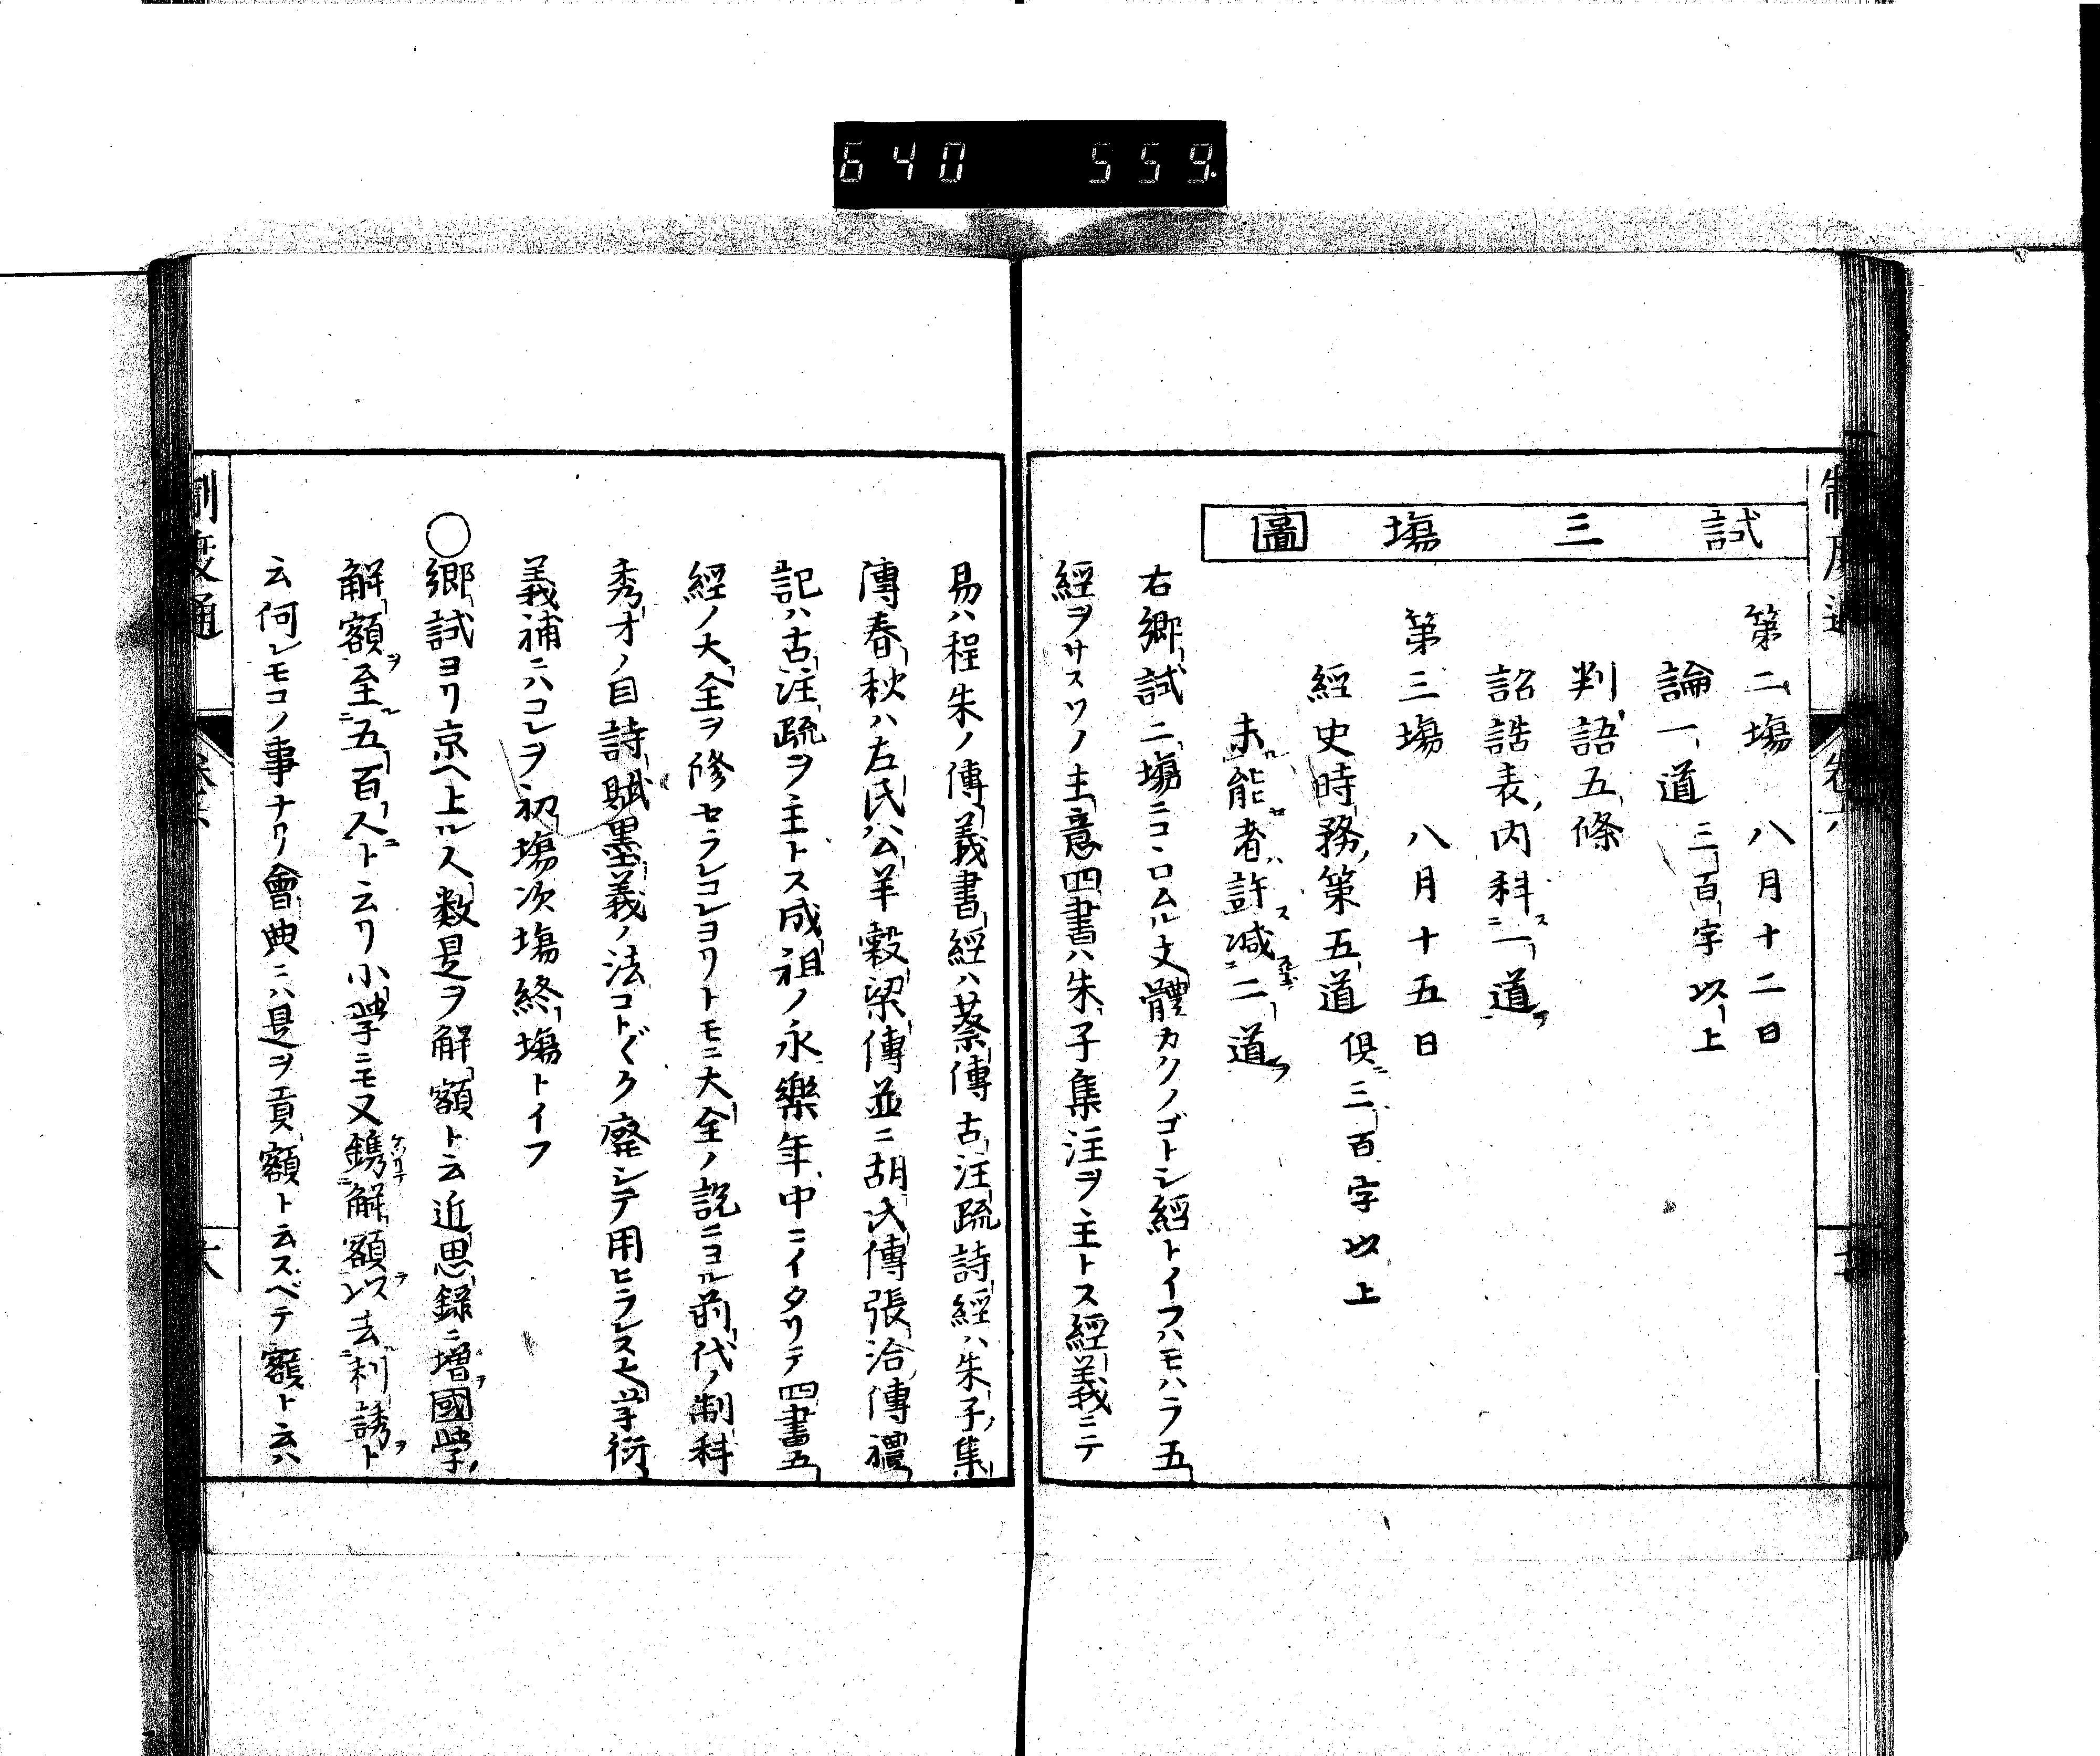 640 559.
試三塲圖
第二塲 八月十二日
論一道 三百字以上
判語五條
詔誥表内科一道
第三塲 八月十五日
經史時務策五道 俱三百字以上
未能者許減二道
右鄉試二塲ニコヽロムル文體カクノゴトシ經トイフハモハラ五
經ヲサスソノ主意四書ハ朱子集注ヲ主トス經義ニテ
易ハ程朱ノ傳義書經ハ蔡傳古注疏詩經ハ朱子集
傳春秋ハ左氏公羊穀梁傳並ニ胡氏傳張洽傳禮
記ハ古注疏ヲ主トス成祖ノ永樂年中ニイタリテ四書五
經ノ大全ヲ修セラレコレヨリトモニ大全ノ説ニヨル前代ノ制科
秀才ノ目詩賦墨義ノ法コト〴〵ク廢シテ用ヒラレス大學衍
義補ニハコレヲ初塲次塲終塲トイフ
〇鄉試ヨリ京ヘ上ル人数是ヲ解額ト云近思録ニ増國學
解額至五百人ト云リ小學ニモ又鐫解額以去利誘ト
云何レモコノ事ナリ會典ニハ是ヲ貢額ト云スベテ額ト云ハ
制度通